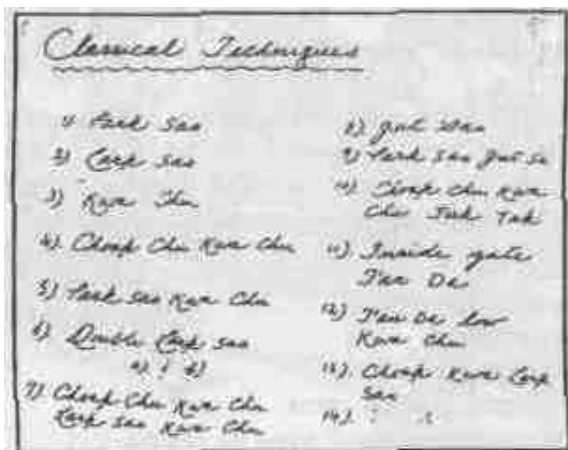 Classical Techniques
1) Park Sao
2) Larp Sao
3) Kwa Chu
4) Choap Chu Kwa Chu
5) Park Sao Kwa Chu
6) Double Larp Sao
a) & b)
7) Choap Chu Kwa Chu
Larp Sao Kwa Chu
8) Jut Sao
9) Park Sao Jut Sao
10) Choap Chu Kwa
Chu Juk Tak
11) Inside gate
Tan Da
12) Tan Da low
Kwa Chu
13) Choap Kwa Larp
Sao
14)